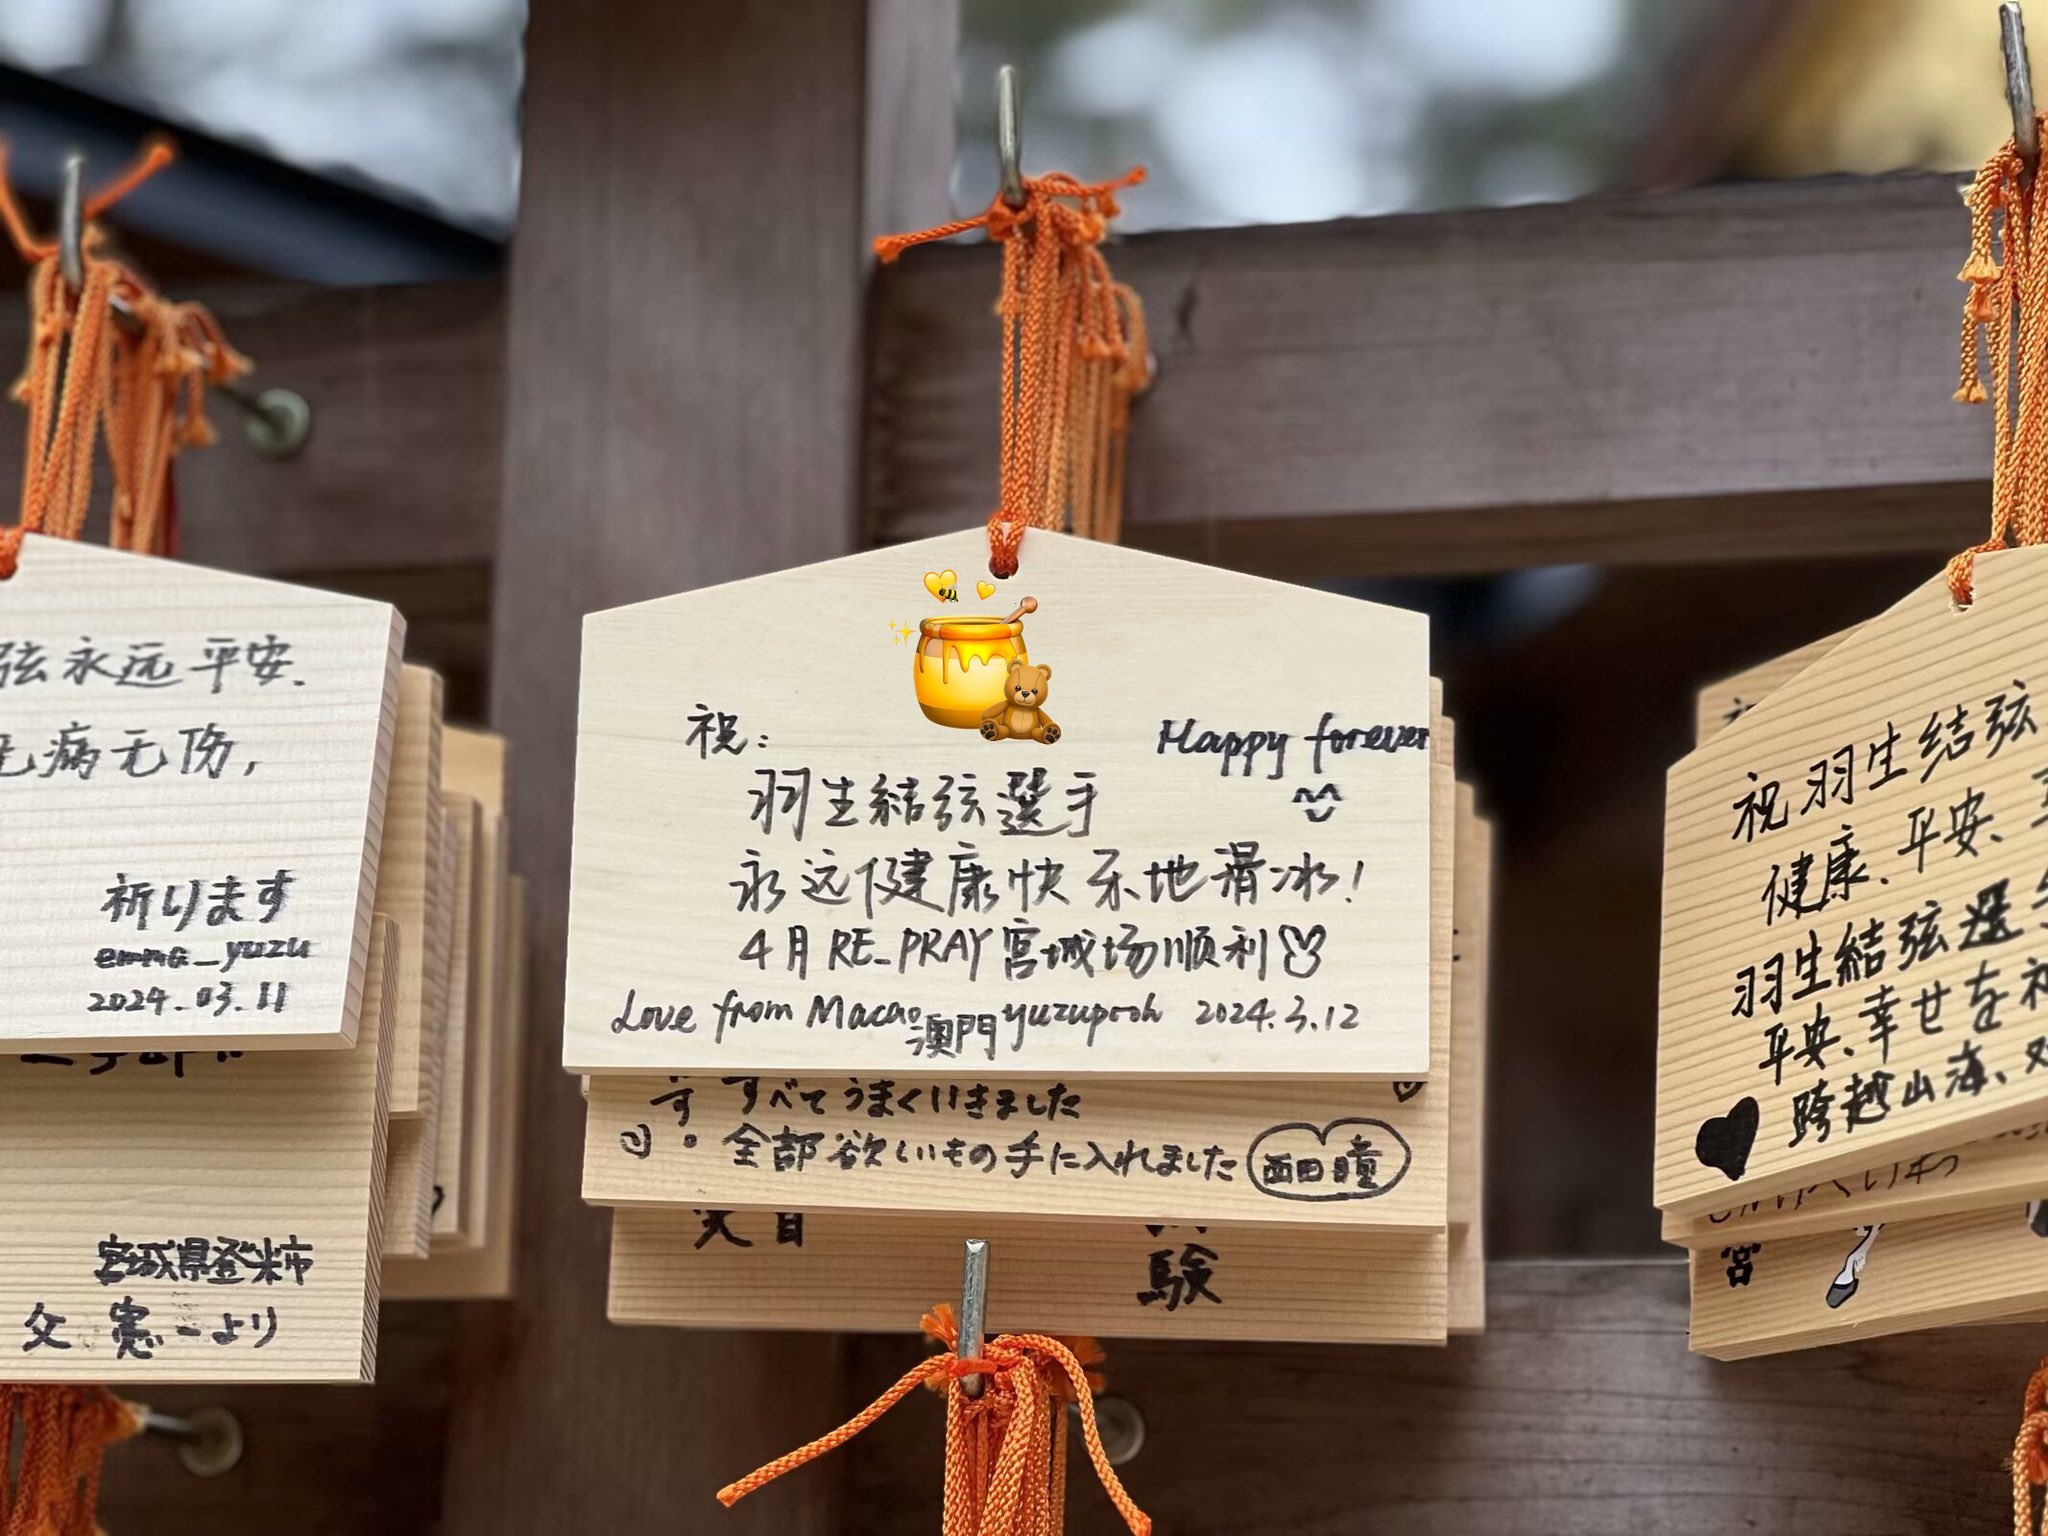 弦永远平安.
无病无伤,
祈ります
emma_yuzu
2024.03.11
宮城県登米市
父 憲一より
祝:
Happy forever
羽生結弦選手
永远健康快乐地滑冰!
4月RE_PRAY宮城场顺利
Love from Macao澳門yuzupooh 2024.3.12
すべてうまくいきました
全部欲しいもの手に入れました 西田瞳
験
祝羽生結弦
健康、平安、
羽生結弦選
平安、幸せを祈
跨越山海、
宮